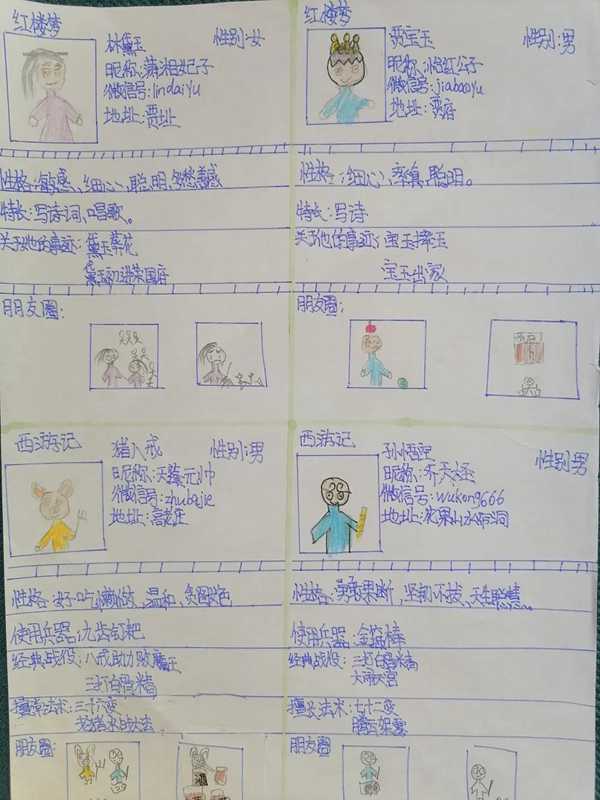 红楼梦
林黛玉 性别:女
昵称:潇湘妃子
微信号:lindaiyu
地址:贾址
性格:敏感、细心、聪明、多愁善感
特长:写诗词、唱歌。
关于她的事迹:黛玉葬花
黛玉初进荣国府
朋友圈:
红楼梦
贾宝玉 性别:男
昵称:怡红公子
微信号:jiabaoyu
地址:贾府
性格:细心、率真、聪明。
特长:写诗
关于他的事迹:宝玉摔玉
宝玉出家
朋友圈:
西游记
猪八戒 性别:男
昵称:天蓬元帅
微信号:zhubajie
地址:高老庄
性格:好吃懒做、温和、贪图美色
使用兵器:九齿钉耙
经典战役:八戒助力败魔王
三打白骨精
擅长法术:三十六变
朋友圈:
西游记
孙悟空 性别男
昵称:齐天大圣
微信号:wukong666
地址:花果山水帘洞
性格:勇敢果断、坚韧不拔、天生聪慧。
使用兵器:金箍棒
经典战役:三打白骨精
大闹天宫
擅长法术:七十二变
腾云驾雾
朋友圈